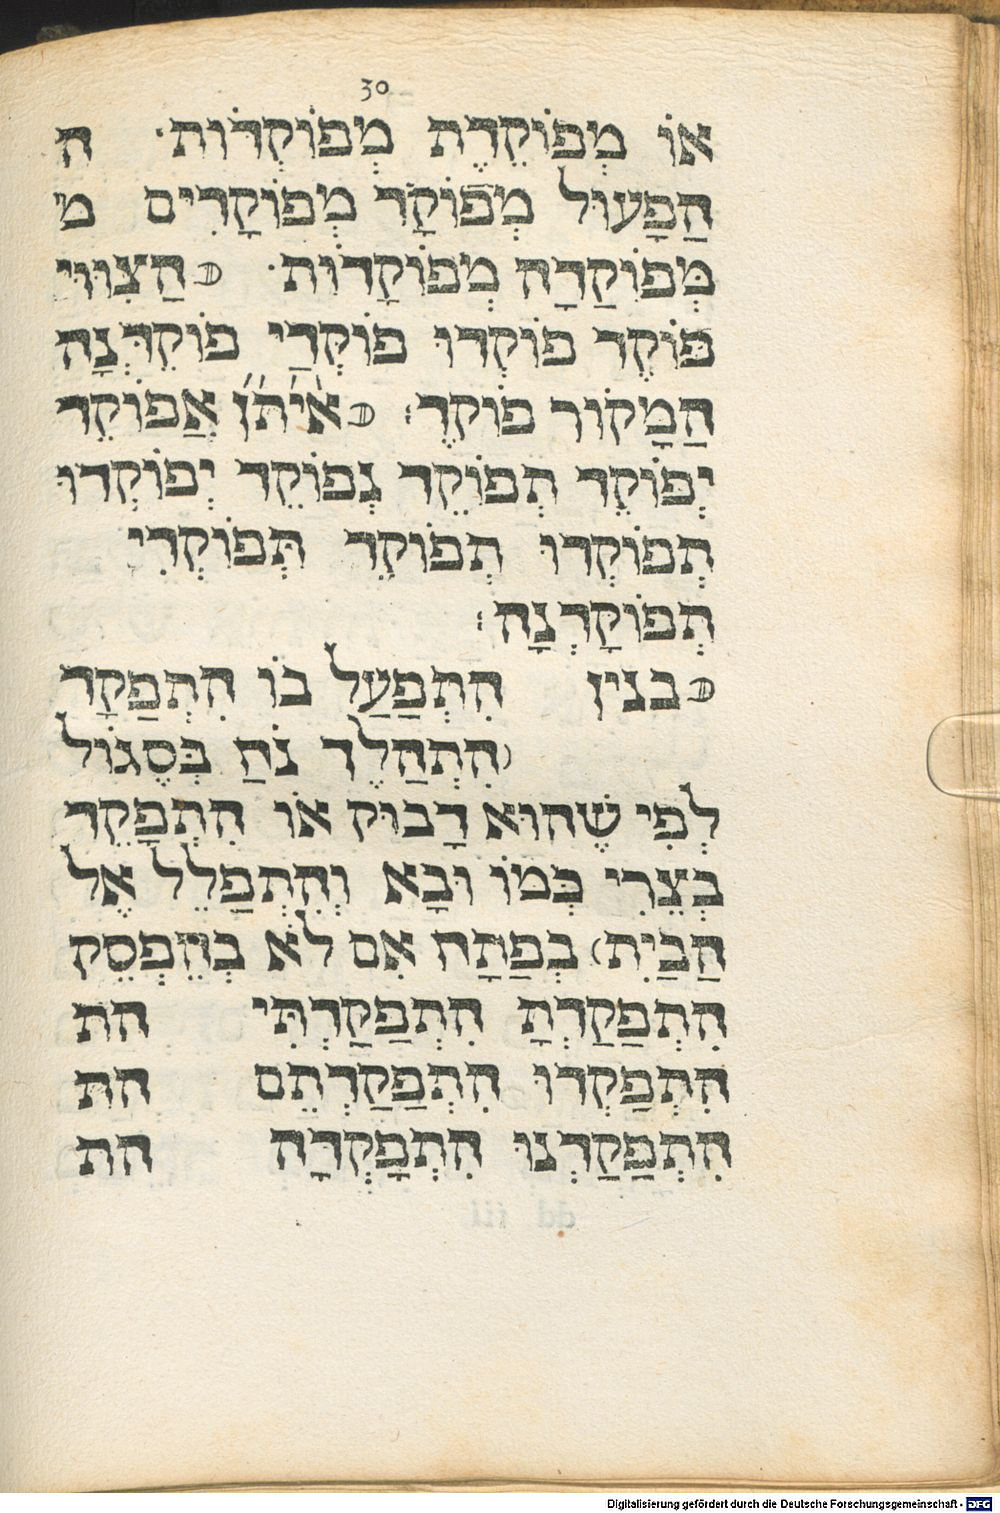 30
אוֹ מְפוֹקֶדֶת מְפוֹקְדוֹת· ה
הַפָעוּל מְפוֹקָד מְפוֹקָדִים מ
מְּפוֹקַדָה מְפוֹקָדוֹת· הַצִוּוּי
פּוֹקֵד פוֹקְדוּ פוֹקְּדִי פוֹקֵדְּנָה
הַמָקוֹר פוֹקֵד׃ אֵיתָן אֲפוֹקֵד
יְפּוֹקֵד תְפוֹקֵד נְפוֹקֵד יְפוֹקְדוּ
תְפוֹקְדוּ תְפוֹקֵד תְּפוֹקְדִי
תְפוֹקָדְנָה׃
בנין הִתְפַעַל בוֹ הִתְפַקָד
(הִתְהַלֶךְ נֹחַ בְּסֶגוֹל
לְפִי שֶׁהוּא דָבוּק אוֹ הִתְפַקֵד
בְצֵרִי כְּמוֹ וּבָא וְהִתְפַלֵל אֶל
הַבַיִת) בְפַתָח אִם לֹא בְהֶפְסֵק
הִתְפַקַדְתָ הִתְפַקַדְתִּי הת
הִתְפַקְדוּ הִתְפַקַדְתֶם הת
הִתְפַקַדְנוּ הִתְפָקְדָה הת
dd iii
Digitalisierung gefördert durch die Deutsche Forschungsgemeinschaft - DFG